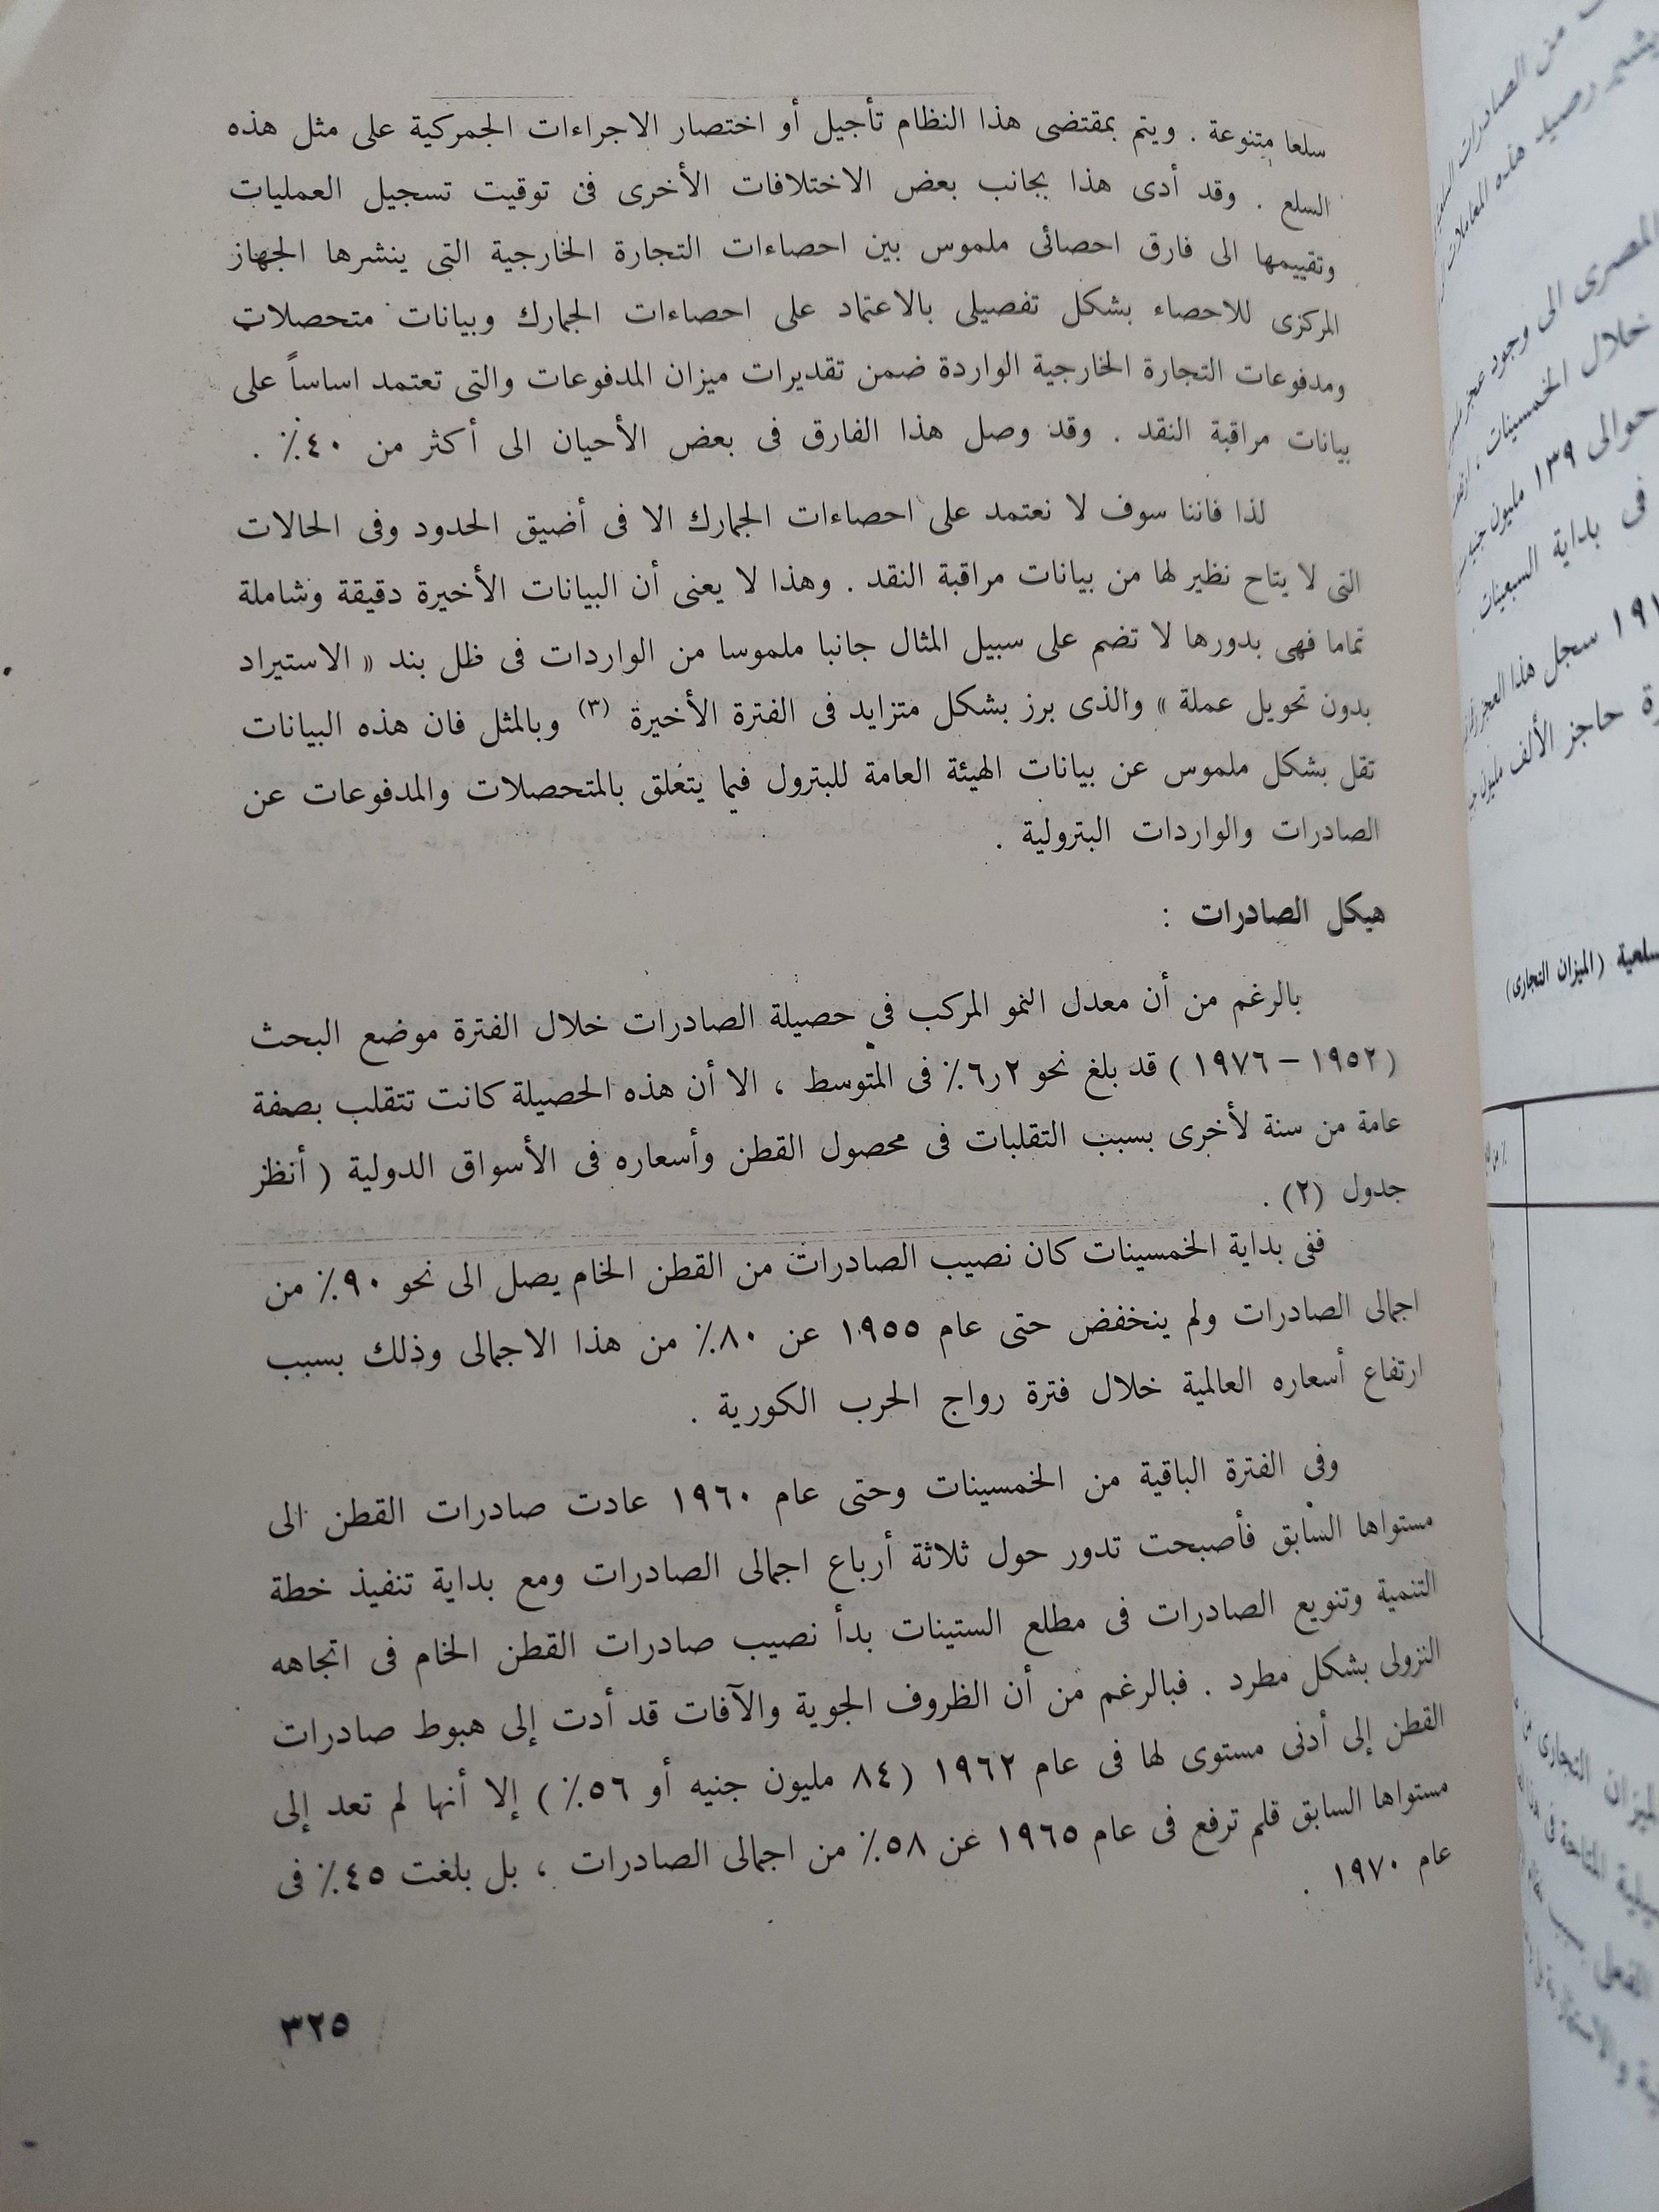 سلعا متنوعة . ويتم بمقتضى هذا النظام تأجيل أو اختصار الاجراءات الجمركية على مثل هذه
السلع . وقد أدى هذا بجانب بعض الاختلافات الأخرى فى توقيت تسجيل العمليات
وتقييمها الى فارق احصائى ملموس بين احصاءات التجارة الخارجية التى ينشرها الجهاز
المركزى للاحصاء بشكل تفصيلى بالاعتماد على احصاءات الجمارك وبيانات متحصلات
ومدفوعات التجارة الخارجية الواردة ضمن تقديرات ميزان المدفوعات والتى تعتمد اساساً على
بيانات مراقبة النقد . وقد وصل هذا الفارق فى بعض الأحيان الى أكثر من ٤٠٪ .
لذا فاننا سوف لا نعتمد على احصاءات الجمارك الا فى أضيق الحدود وفى الحالات
التى لا يتاح نظير لها من بيانات مراقبة النقد . وهذا لا يعنى أن البيانات الأخيرة دقيقة وشاملة
تماما فهى بدورها لا تضم على سبيل المثال جانبا ملموسا من الواردات فى ظل بند « الاستيراد
بدون تحويل عملة » والذى برز بشكل متزايد فى الفترة الأخيرة (٣) وبالمثل فان هذه البيانات
تقل بشكل ملموس عن بيانات الهيئة العامة للبترول فيما يتعلق بالمتحصلات والمدفوعات عن
الصادرات والواردات البترولية .
هيكل الصادرات :
بالرغم من أن معدل النمو المركب فى حصيلة الصادرات خلال الفترة موضع البحث
(١٩٥٢ – ١٩٧٦ ) قد بلغ نحو ٦٫٢٪ فى المتوسط ، الا أن هذه الحصيلة كانت تتقلب بصفة
عامة من سنة لأخرى بسبب التقلبات فى محصول القطن وأسعاره فى الأسواق الدولية ( أنظر
جدول (٢) .
ففى بداية الخمسينات كان نصيب الصادرات من القطن الخام يصل الى نحو ٩٠٪ من
اجمالى الصادرات ولم ينخفض حتى عام ١٩٥٥ عن ٨٠٪ من هذا الاجمالى وذلك بسبب
ارتفاع أسعاره العالمية خلال فترة رواج الحرب الكورية .
وفى الفترة الباقية من الخمسينات وحتى عام ١٩٦٠ عادت صادرات القطن الى
مستواها السابق فأصبحت تدور حول ثلاثة أرباع اجمالى الصادرات ومع بداية تنفيذ خطة
التنمية وتنويع الصادرات فى مطلع الستينات بدأ نصيب صادرات القطن الخام فى اتجاهه
النزولى بشكل مطرد . فبالرغم من أن الظروف الجوية والآفات قد أدت إلى هبوط صادرات
القطن إلى أدنى مستوى لها فى عام ١٩٦٢ (٨٤ مليون جنيه أو ٥٦٪ ) إلا أنها لم تعد إلى
مستواها السابق قلم ترفع فى عام ١٩٦٥ عن ٥٨٪ من اجمالى الصادرات ، بل بلغت ٤٥٪ فى
عام ١٩٧٠ .
٣٢٥
من الصادرات
رصيد هذه المعاملات
المصرى الى وجود عجز
خلال الخمسينات ،
حوالى ١٣٩ مليون
فى بداية السبعينات
سجل هذا العجز
حاجز الألف مليون
(الميزان التجارى)